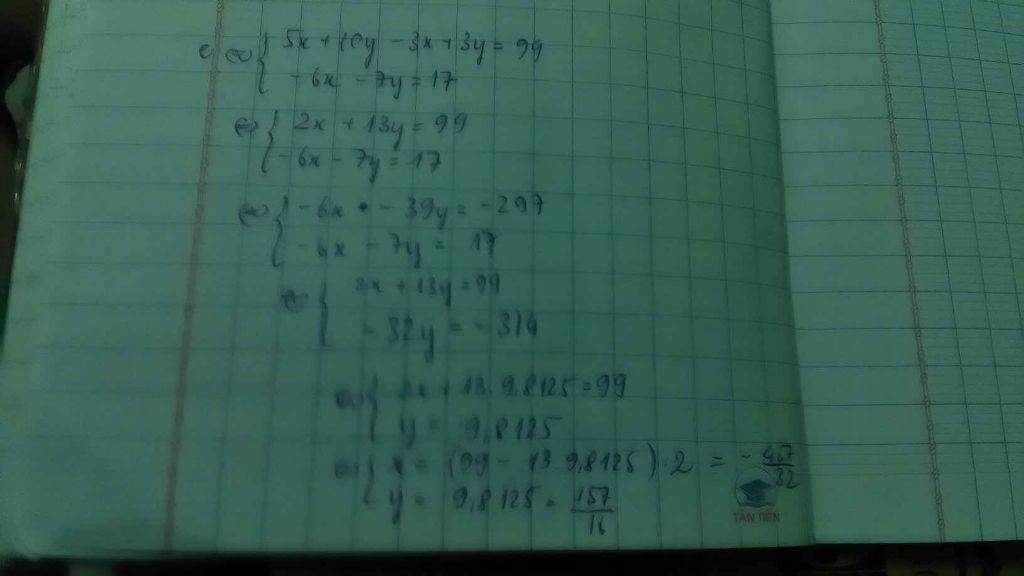 ⇔ { 5x + 10y - 3x + 3y = 99
-6x - 7y = 17
⇔ { 2x + 13y = 99
-6x - 7y = 17
⇔ { -6x - 39y = -297
-6x - 7y = 17
⇔ { 2x + 13y = 99
-32y = -314
⇔ { 2x + 13.9,8125 = 99
y = 9,8125
⇔ { x = (99 - 13.9,8125).2 =
y = 9,8125 = 157/16
TAN TIEN